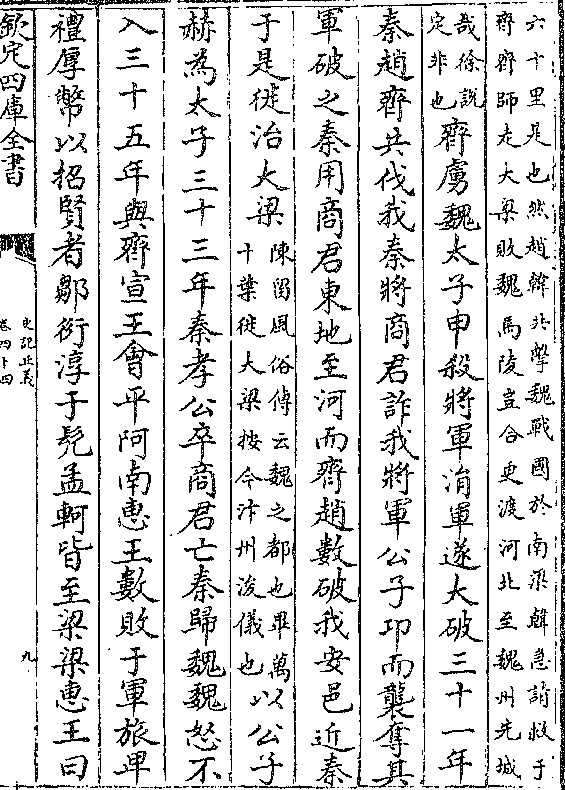 六十里是也然趙韓共擊魏戰國於南梁韓急請救于
齊齊師走大梁敗魏馬陵豈合更渡河北至魏州元城
哉徐說
定非也
齊虜魏太子申殺將軍涓軍遂大破三十一年
秦趙齊共伐我秦將商君詐我將軍公子卬而襲奪其
軍破之秦用商君東地至河而齊趙數破我安邑近秦
于是徙治大梁
陳留風俗傳云魏之都也畢萬
十葉徙大梁按今汴州浚儀也
以公子
赫為太子三十三年秦孝公卒商君亡秦歸魏魏怒不
入三十五年與齊宣王會平阿南惠王數敗于軍旅卑
禮厚幣以招賢者鄒衍淳于髡孟軻皆至梁梁惠王曰
欽定四庫全書
史記正義
卷四十四
九